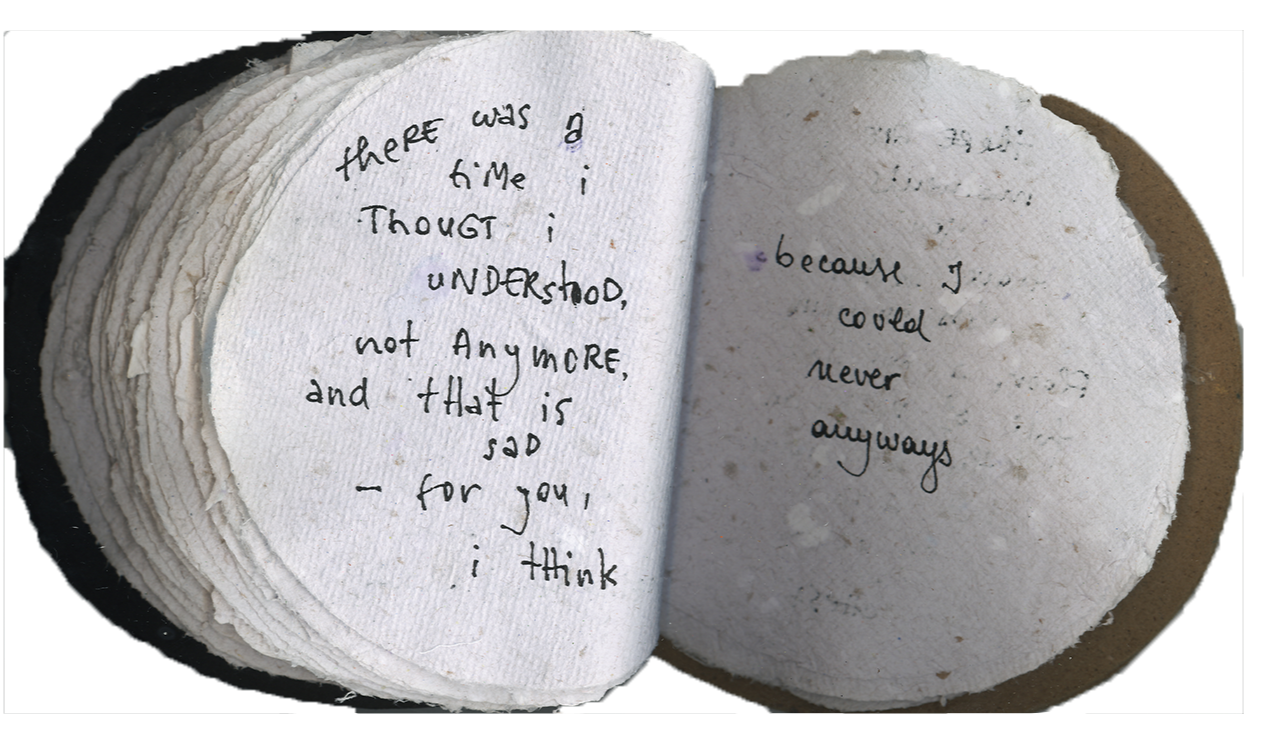 theRE was a
tiMe i
ThouGT i
uNDERstooD,
not AnymORE,
and tHat is
saD
– for you,
i tHink
because I
could
never
anyways